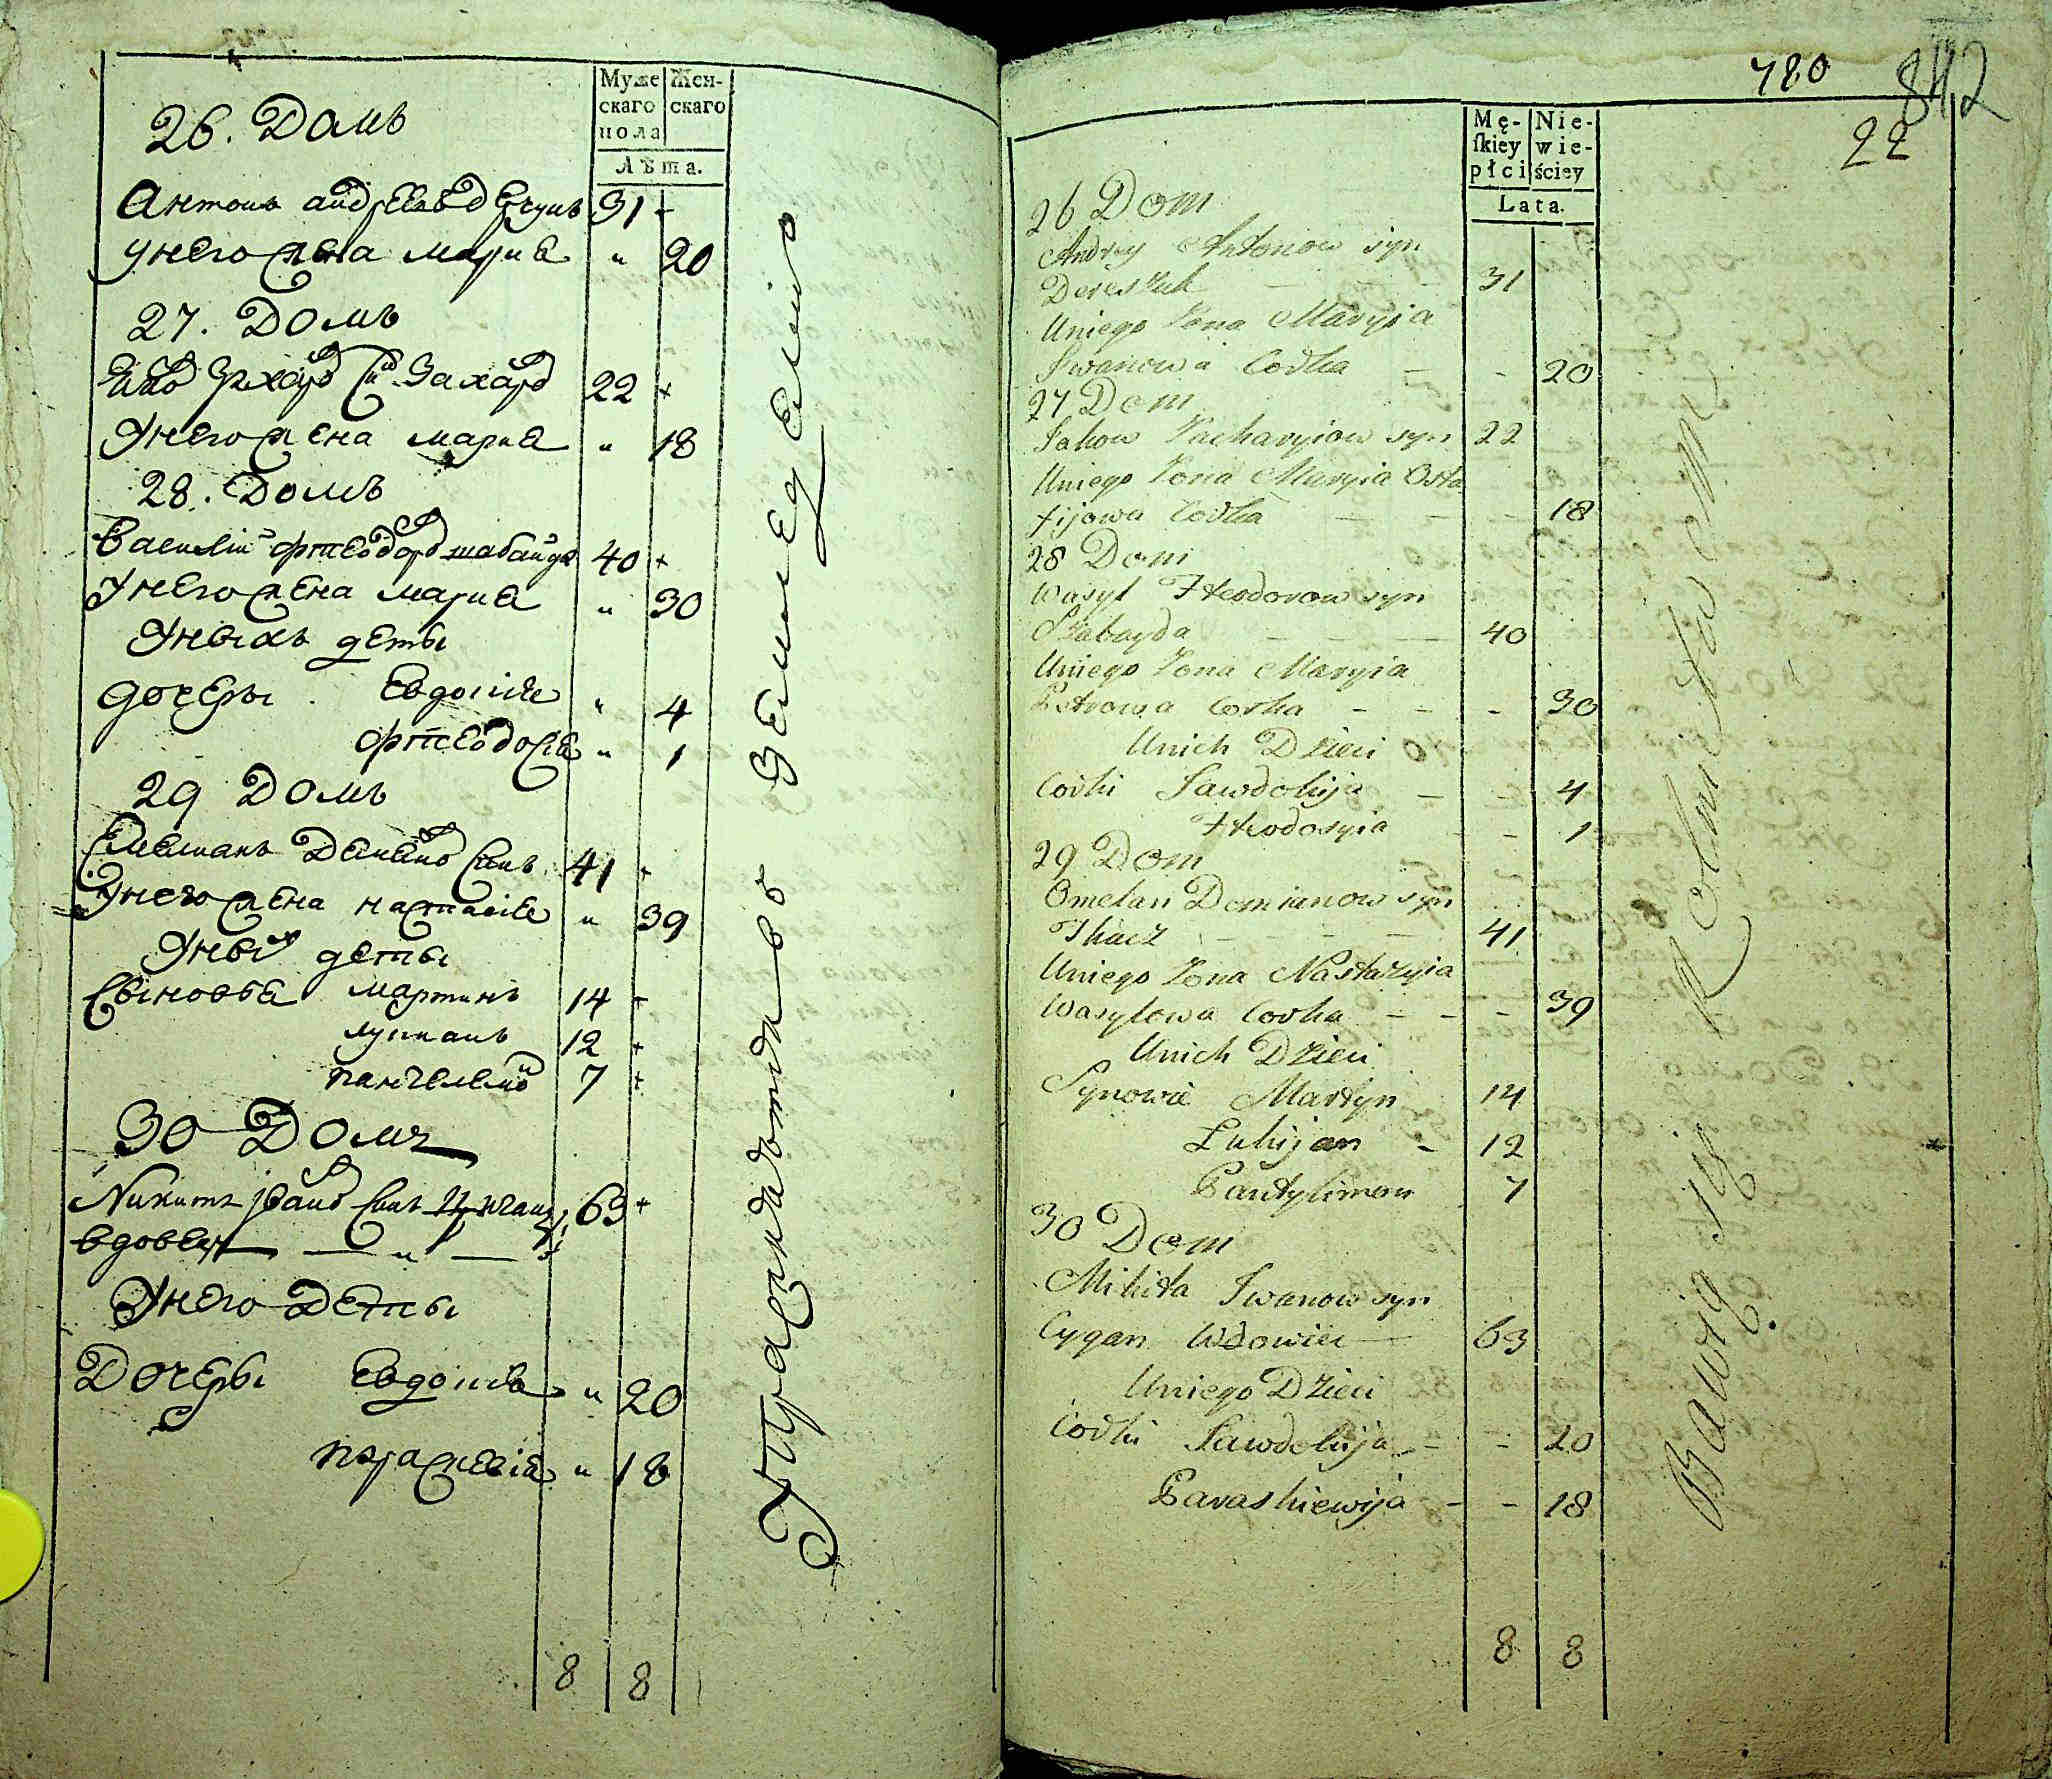 Муже
скаго
пола
Жен-
скаго
Лѣта.
26. Домъ
Антонъ 31
Унего жена мариа „ 20
27. Домъ
Захаро 22
Унего жена мариа „ 18
28. Домъ
Василій шабайда 40
Унего жена мариа „ 30
Унихъ деты
дочеры Евдокіе „ 4
„ 1
29 Домъ
Емелианъ Демено Синъ 41
Унего жена настасіе „ 39
Уних деты
Сыновѣа мартинъ 14
лукианъ 12
пантелемо 7
30 Домъ
Никита јвано Синъ 63
вдовецъ — „ —
Унего Деты
Дочеры Евдокіа „ 20
параскевіа „ 18
8 8
780
842
22
Mę-
ſkiey
płci
Nie-
wie-
ściey
Lata.
26 Dom
Andrey Antonow syn
Dereszuk — — — 31
Uniego Zona Maryia
Iwanowa Corka — - 20
27 Dom
Jakow Zacharyiow syn 22
Uniego Zona Maryia Osta
fijowa Corka — — - 18
28 Dom
Wasyl Fteodorow syn
Szabayda — — — 40
Uniego Zona Maryia
Petrowa Corka — — - 30
Unich Dzieci
Corki Jawdokija — - 4
Fteodosyia - - 1
29 Dom
Omelan Demianow syn
Tkacz — — — 41
Uniego Zona Nastazyia
Wasylowa Corka — — - 39
Unich Dzieci
Synowie Martyn 14
Lukijan - 12
Pantylimon 7
30 Dom
Mikita Iwanow syn
Cygan Wdowiec — 63
Uniego Dzieci
Corki Jawdokija - - 20
Paraskiewija - - 18
8 8
Bawią się Rolnictwem